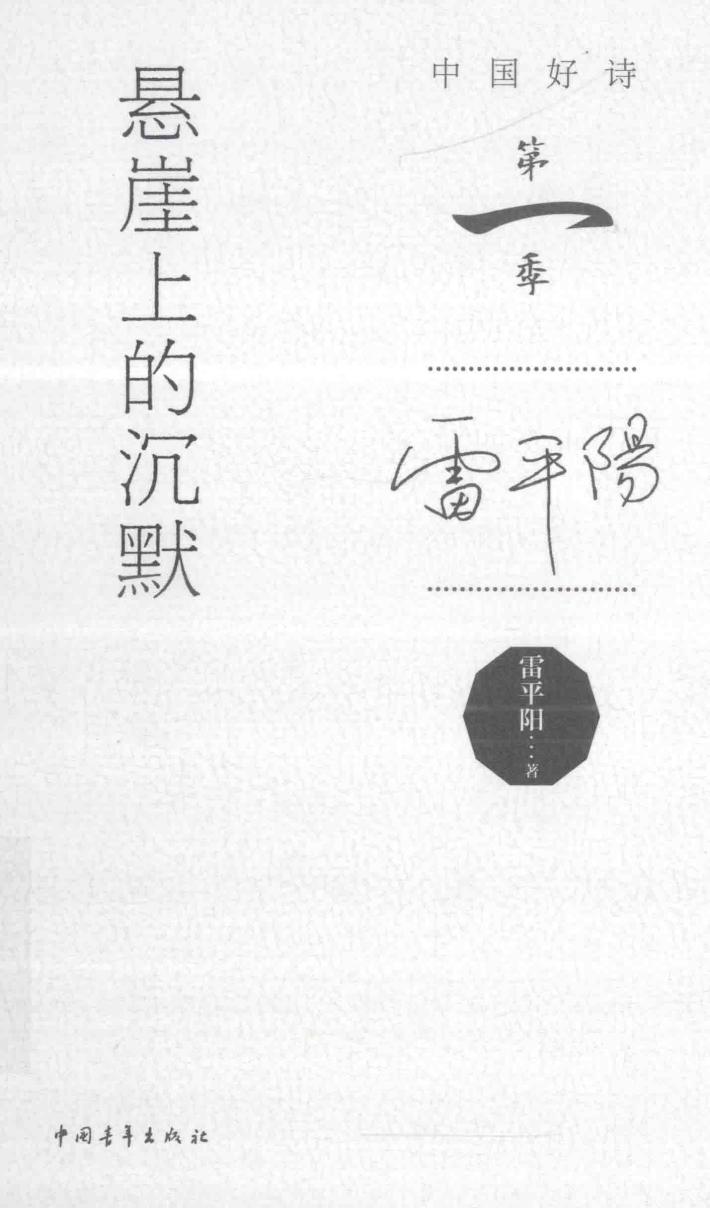 中国好诗
第
一
季
悬崖上的沉默
雷平陽
雷平阳···著
中国青年出版社